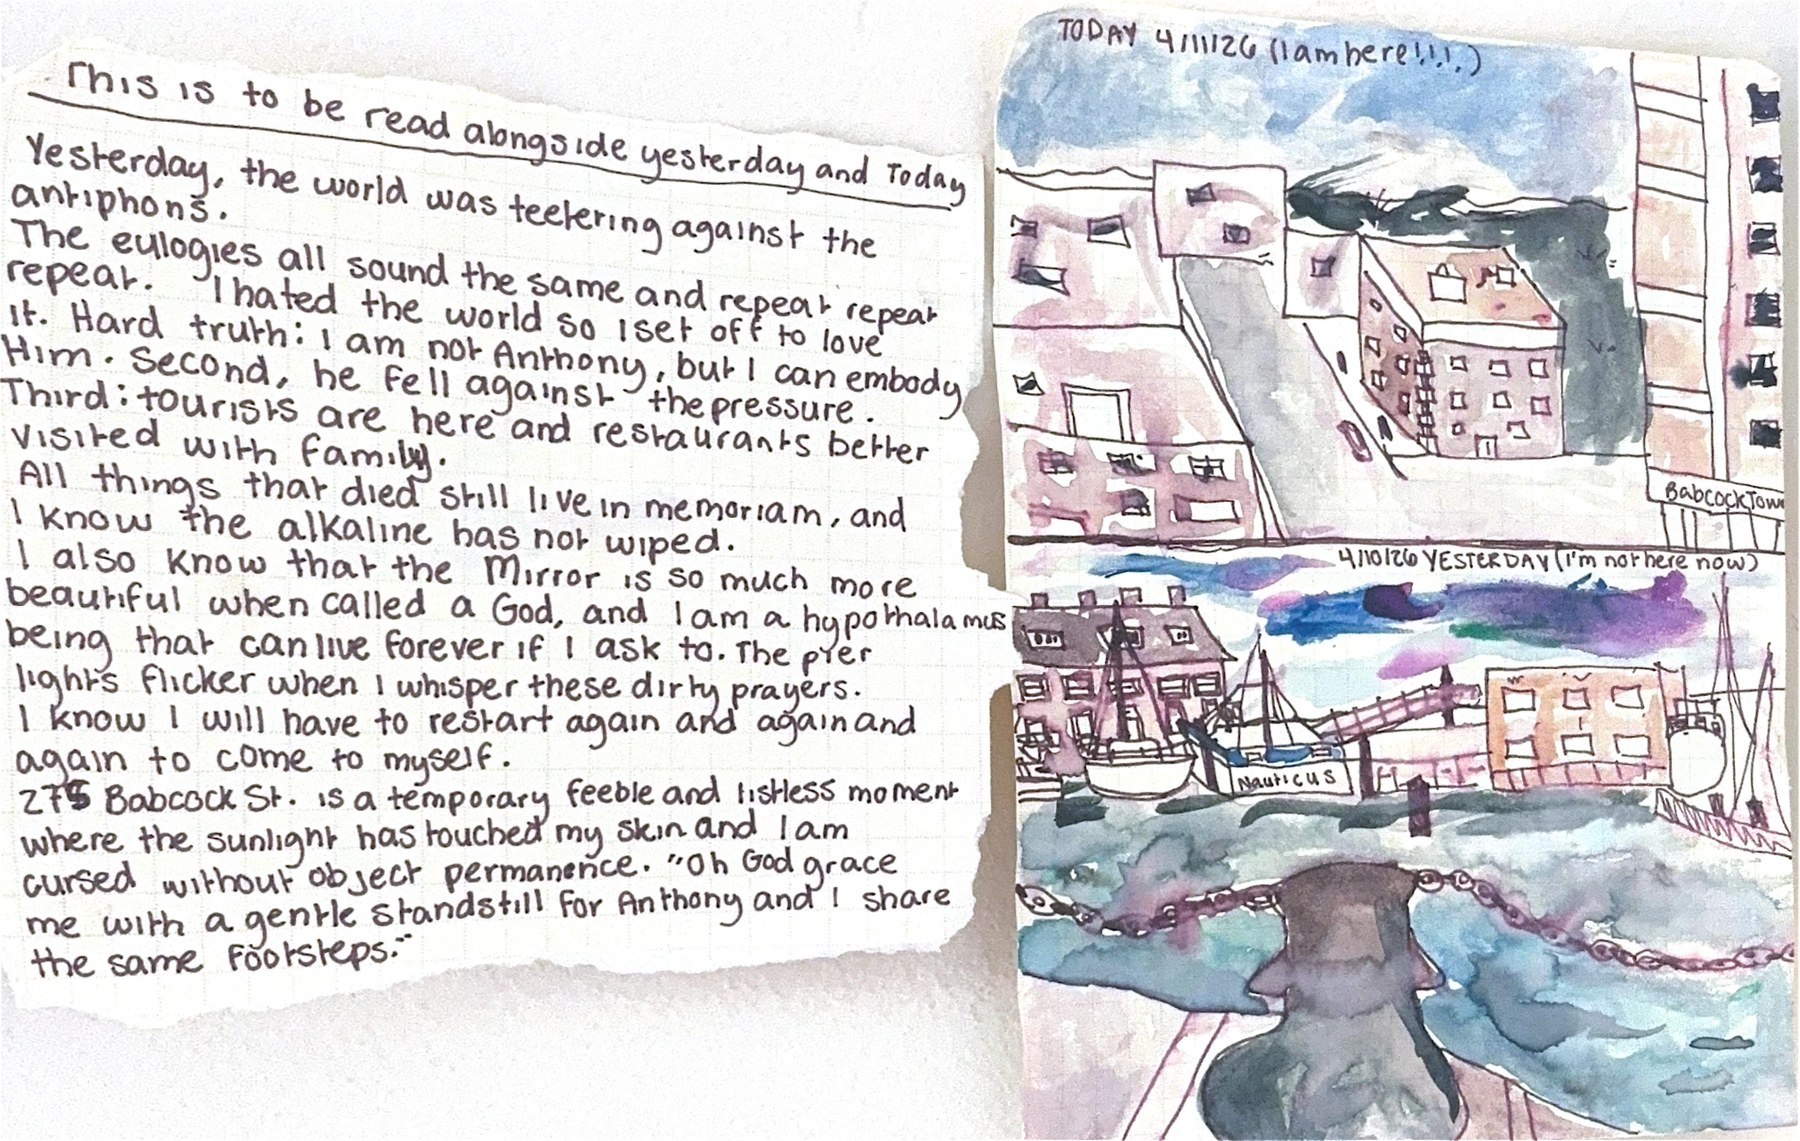 This is to be read alongside yesterday and Today
Yesterday, the world was teetering against the
antiphons.
The eulogies all sound the same and repeat repeat
repeat. I hated the world so I set off to love
it. Hard truth: I am not Anthony, but I can embody
Him. Second, he fell against the pressure.
Third: tourists are here and restaurants better
visited with family.
All things that died still live in memoriam, and
I know the alkaline has not wiped.
I also know that the Mirror is so much more
beautiful when called a God, and I am a hypothalamus
being that can live forever if I ask to. The pier
lights flicker when I whisper these dirty prayers.
I know I will have to restart again and again and
again to come to myself.
275 Babcock St. is a temporary feeble and listless moment
where the sunlight has touched my skin and I am
cursed without object permanence. "Oh God grace
me with a gentle standstill for Anthony and I share
the same footsteps."
TODAY 4/11/26 (I am here!!!!)
Babcock Tow
4/10/26 YESTERDAY (I'm not here now)
Nauticus